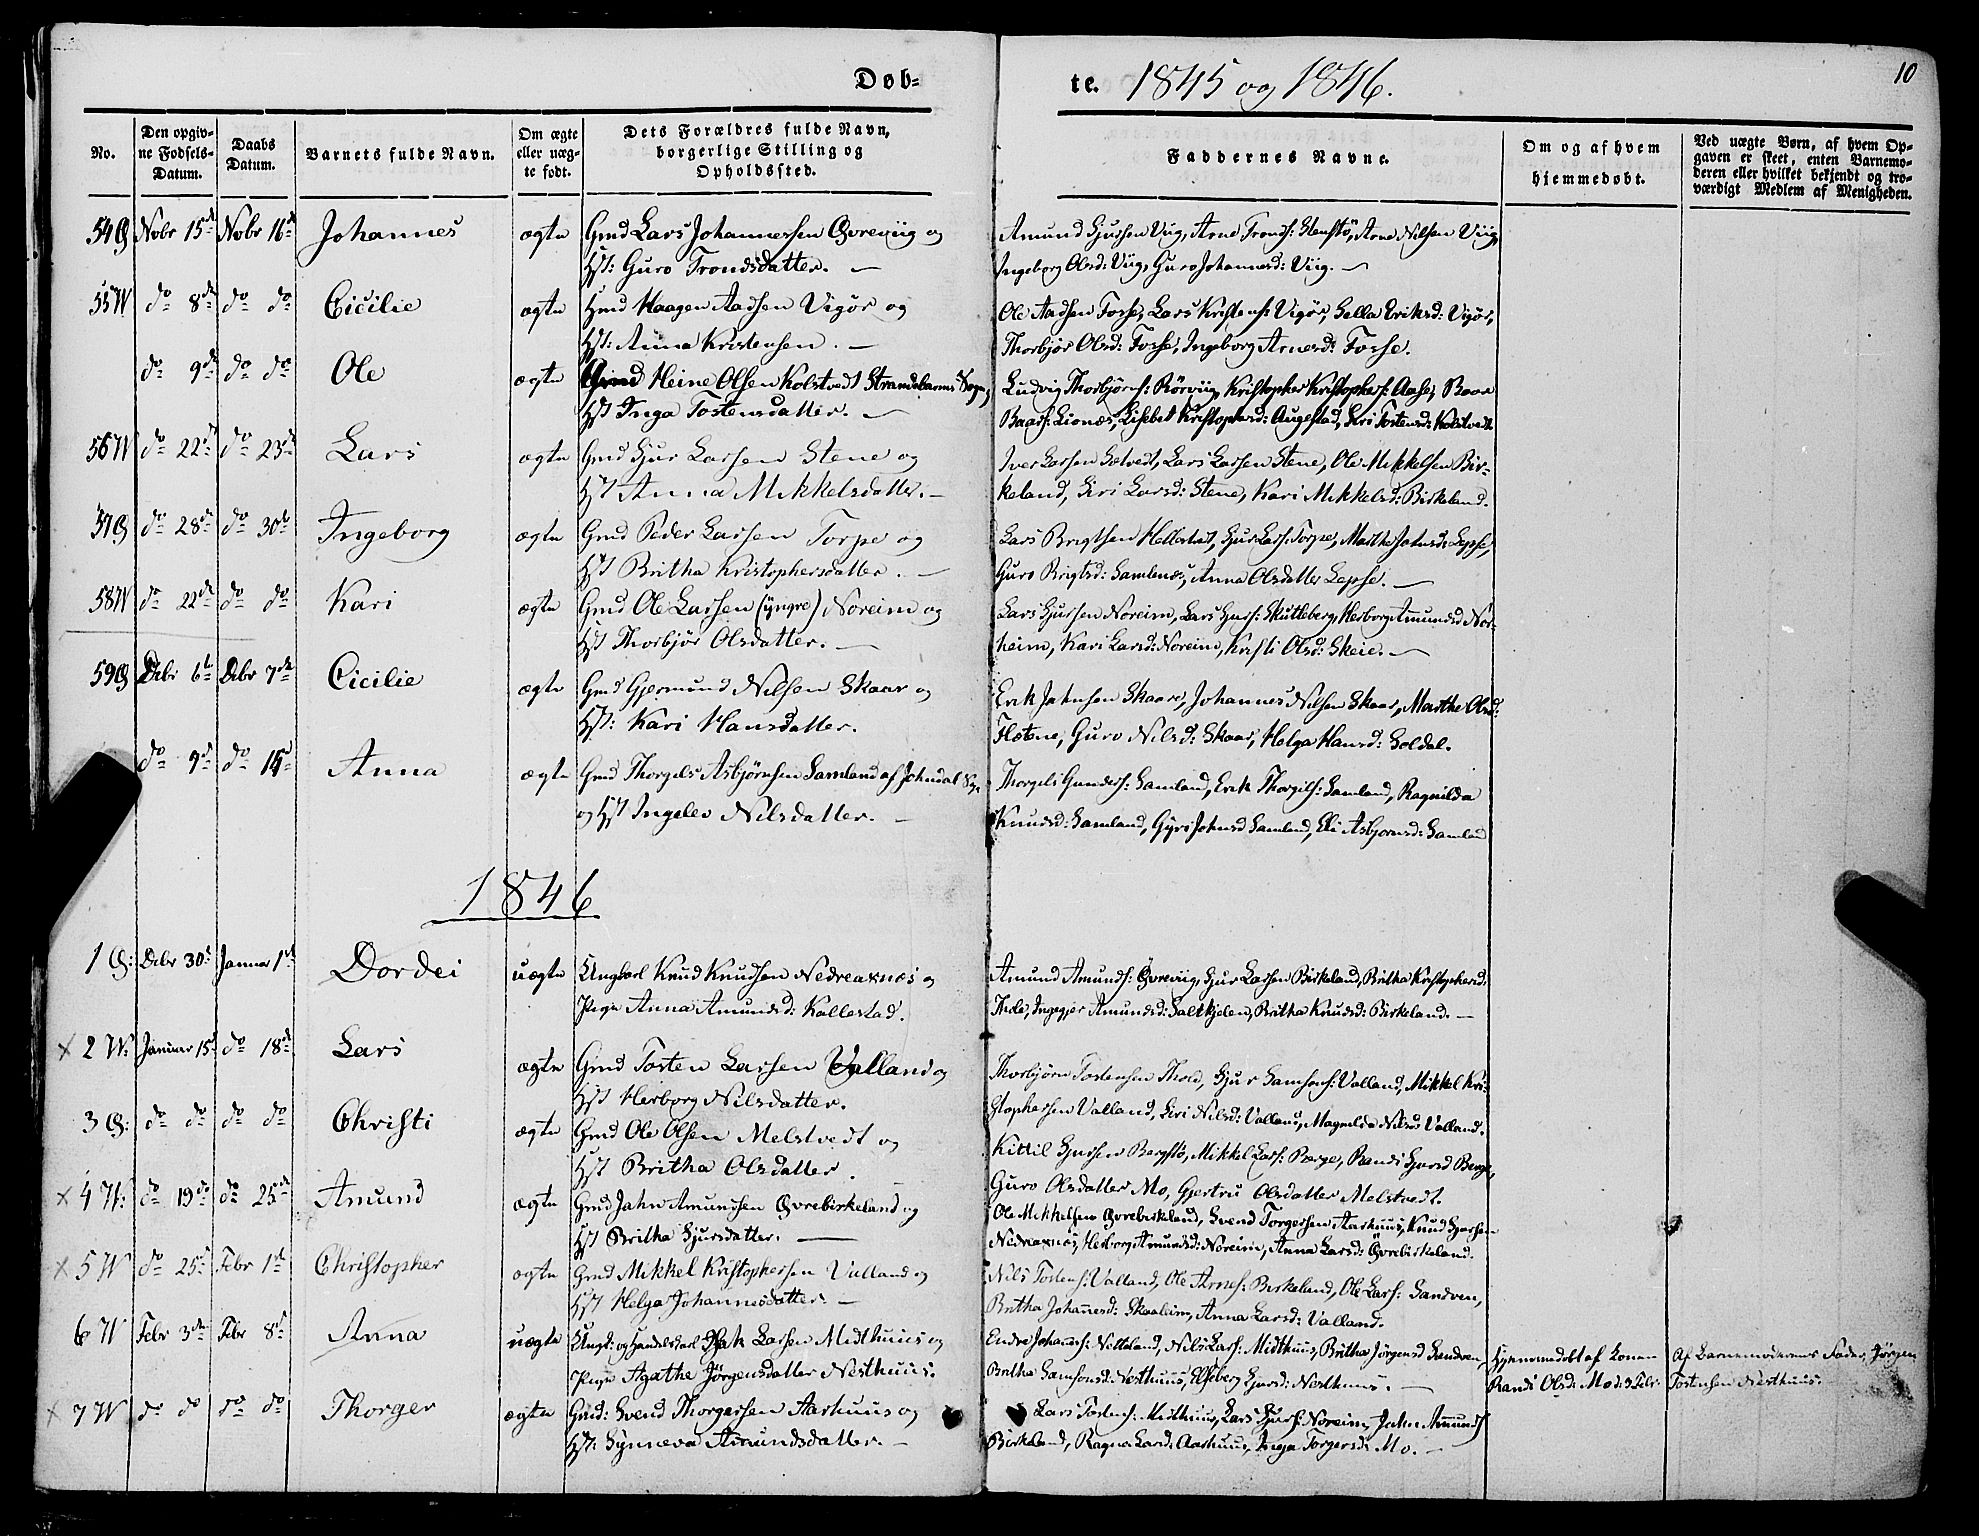 Døb-
te. 1845 og 1846.
10
No.
Den opgiv-
ne Fødsels-
Datum.
Daabs
Datum.
Barnets fulde Navn.
Om ægte
eller uæg-
te født.
Dets Forældres fulde Navn,
borgerlige Stilling og
Opholdssted.
Faddernes Navne.
Om og af hvem
hjemmedøbt.
Ved uægte Børn, af hvem Op-
gaven er skeet, enten Barnemo-
deren eller hvilket bekjendt og tro-
værdigt Medlem af Menigheden.
54 Ø Nobr 15de Nobr 16de Johannes ægte Gmd Lars Johannessen Øvreviig og
Hst: Guro Trondsdatter. —
Amund Sjursen Viig, Arne Tronds: Stenstø, Arne Nilsen Viig,
Ingeborg Olsd: Viig, Guro Johannesd: Viig. —
55 W do 8de do do Cicilie ægte Hmd Haagen Aadsen Vigør og
Hst: Anna Kristensen. —
Ole Aadsen Fosse, Lars Kristens: Vigør, Sella Eriksd: Vigør,
Thorbjør Olsd: Fosse, Ingeborg Arnesd: Fosse.
do 9de do do Ole ægte Gmd Heine Olsen Kolstvedt Strandebarms Sogn,
Hst Inga Tostensdatter. —
Ludvig Thorbjørns: Rørviig, Kristopher Kristophers: Aase, Baar
Baars: Lionæs, Lisebet Kristophersd: Augestad, Siri Tostensd: Kolstvedt
56 W do 22de do 23de Lars ægte Gmd Sjur Larsen Stene og
Hst Anna Mikkelsdatter. —
Iver Larsen Sætvedt, Lars Larsen Stene, Ole Mikkelsen Bir-
keland, Siri Larsd: Stene, Kari Mikkelsd: Birkeland.
57 Ø do 28de do 30te Ingeborg ægte Gmd Peder Larsen Torpe og
Hst Britha Kristophersdatter. —
Lars Brigtsen Hellestad, Sjur Lars: Torpe, Marthe Johnsd: Lepse,
Guro Brigtsd: Samlenæs, Anna Olsdatter Lepse. —
58 W do 22de do do Kari ægte Gmd Ole Larsen (yngre) Noreim og
Hst Thorbjør Olsdatter. —
Lars Sjursen Noreim, Lars Sjurs: Skutleberg, Herborg Amundsd Nor-
heim, Kari Larsd: Noreim, Kristi Olsd: Skeie. —
59 Ø Debr 6te Debr 7de Cicilie ægte Gmd Gjermund Nilsen Skaar og
Hst: Kari Hansdatter.
Erik Johnsen Skaare, Johannes Nilsen Skaar, Marthe Olsd:
Flotene, Guro Nilsd: Skaar, Helga Hansd: Soldal.
do 9de do 14de Anna ægte Gmd Thorgels Asbjørnsen Samland af Johndal Sogn
og Hst Ingelev Nilsdatter. —
Thorgels Gunders: Samland, Erik Thorgils: Samland, Ragnilda
Knudsd: Samland, Gyri Johnsd Samland, Eli Asbjornsd: Samland
1846
1 Ø: Debr 30te Januar 1ste Dordei uægte Ungkarl Knud Knudsen Nedreaxnæs og
Pige Anna Amundsd: Kallestad.
Amund Amunds: Øvreviig, Sjur Larsen Birkeland, Britha Kristophersd.
Thole, Ingegjer Amundsd: Saltkjelen, Britha Knudsd: Birkeland. —
x 2 W: Januar 15de do 18de Lars ægte Gmd Tosten Larsen Valland og
Hst Herborg Nilsdatter.
Thorbjørn Tostensen Thole, Sjur Samsons: Valland, Mikkel Kri-
stophersen Valland, Siri Nilsd: Valland, Magnilda Nilsd Valland.
3 Ø: do do do do Christi ægte Gmd Ole Olsen Melstvedt og
Hst Britha Olsdatter.
Kittil Sjursen Bergstø, Mikkel Lars: Berge, Randi Sjursd Berge,
Guro Olsdatter Mo, Gjertru Olsdatter Melstvedt.
x 4 W: do 19de do 25de Amund ægte Gmd John Amundsen Øvrebirkeland og
Hst Britha Sjursdatter. —
Ole Mikkelsen Øvrebirkeland, Svend Torgersen Aarhuus, Knud Sjursen
Nedreaxnæs, Herborg Amundsd: Noreim, Anna Larsd: Øvrebirkeland.
x 5 W do 25de Febr 1ste Christopher ægte Gmd Mikkel Kristophersen Valland og
Hst Helga Johannesdatter. —
Nils Tostens: Valland, Ole Arnes: Birkeland, Ole Lars: Sandven,
Britha Johannesd: Skaaleim, Anna Larsd: Valland.
6 W Febr 3de Febr 8de Anna uægte Ungk: og Handelskarl Isak Larsen Midthuus og
Pige Agathe Jørgensdatter Nesthuus.
Endre Johanns: Netteland, Nils Lars: Midthuus, Britha Jørgensd Sandven,
Britha Samsonsd: Nesthuus, Elseberg Sjursd: Nesthuus. —
Hjemmedøbt af Konen
Randi Olsd: Mo d: 3 Febr.
Af Barnemoderens Fader, Jørgen
Tostensen Nesthuus.
x 7 W do do do do Thorger ægte Gmd: Svend Thorgersen Aarhuus og
Hst: Synneva Amundsdatter. —
Lars Tostens: Midthuus, Lars Sjurs: Noreim, John Amunds
Birkeland, Ragna Larsd: Aarhuus, Inga Torgersd: Mo. —